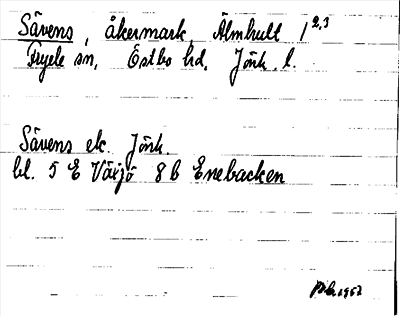 Sävens, åkermark Älmhult 1²,³
Fryele sn, Östbo hd, Jönk. l.
Sävens ek. Jönk.
bl. 5 E Växjö 8 b Enebacken
1952